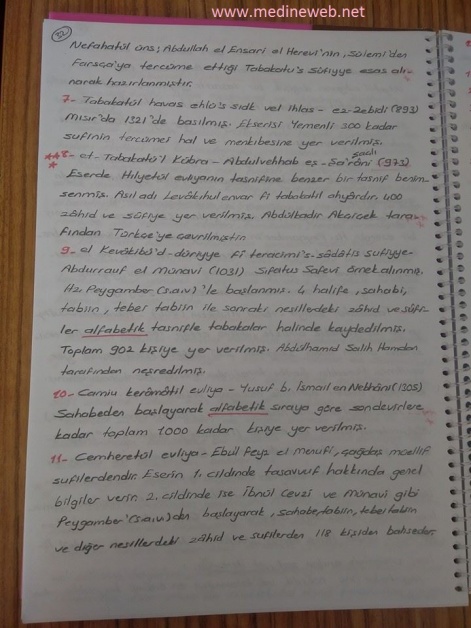 www.medineweb.net
32
Nefahatül üns; Abdullah el Ensari el Herevi'nin, Sülemi'den
Farsça'ya tercüme ettiği Tabakatu's sûfiyye esas alı-
narak hazırlanmıştır.
7- Tabakatül havas ehlo's sıdk vel ihlas - ez-Zebidi (893)
Mısır'da 1321'de basılmış. Ekserisi Yemenli 300 kadar
sufinin tercümei hal ve menkıbesine yer verilmiş.
8- et-Tabakatü'l Kübra - Abdulvehhab eş-Şa'rânî (973)
Eserde Hilyetül evliyanın tasnifine benzer bir tasnif benim-
senmiş. Asıl adı Levâkıhul envar fi tabakatil ahyârdır. 400
zâhid ve sûfiye yer verilmiş. Abdülkadir Akçiçek tara-
fından Türkçe'ye çevrilmiştir.
9- el Kevâkibü'd-dürriyye fî teracimi's-sâdâtis sufiyye-
Abdurrauf el Münavi (1031) Sıfatus Safevi örnek alınmış.
Hz. Peygamber (s.a.v)'le başlanmış. 4 halife, sahabi,
tabiin, tebei tabiin ile sonraki nesillerdeki zâhid ve sûfi-
ler alfabetik tasnifle tabakalar halinde kaydedilmiş.
Toplam 902 kişiye yer verilmiş. Abdülhamid Salih Hamdan
tarafından neşredilmiş.
10- Camiu kerâmâtil evliya - Yusuf b. İsmail en Nebhâni (1305)
Sahabeden başlayarak alfabetik sıraya göre son devirlere
kadar toplam 1000 kadar kişiye yer verilmiş.
11- Cemheretül evliya - Ebül Feyz el menufi, çağdaş müellif
sufilerdendir. Eserin 1. cildinde tasavvuf hakkında genel
bilgiler verir. 2. cildinde ise İbnül Cevzi ve Münavi gibi
Peygamber (s.a.v)den başlayarak, sahabe, tabiin, tebei tabiin
ve diğer nesillerdeki zâhid ve sufilerden 118 kişiden bahseder.